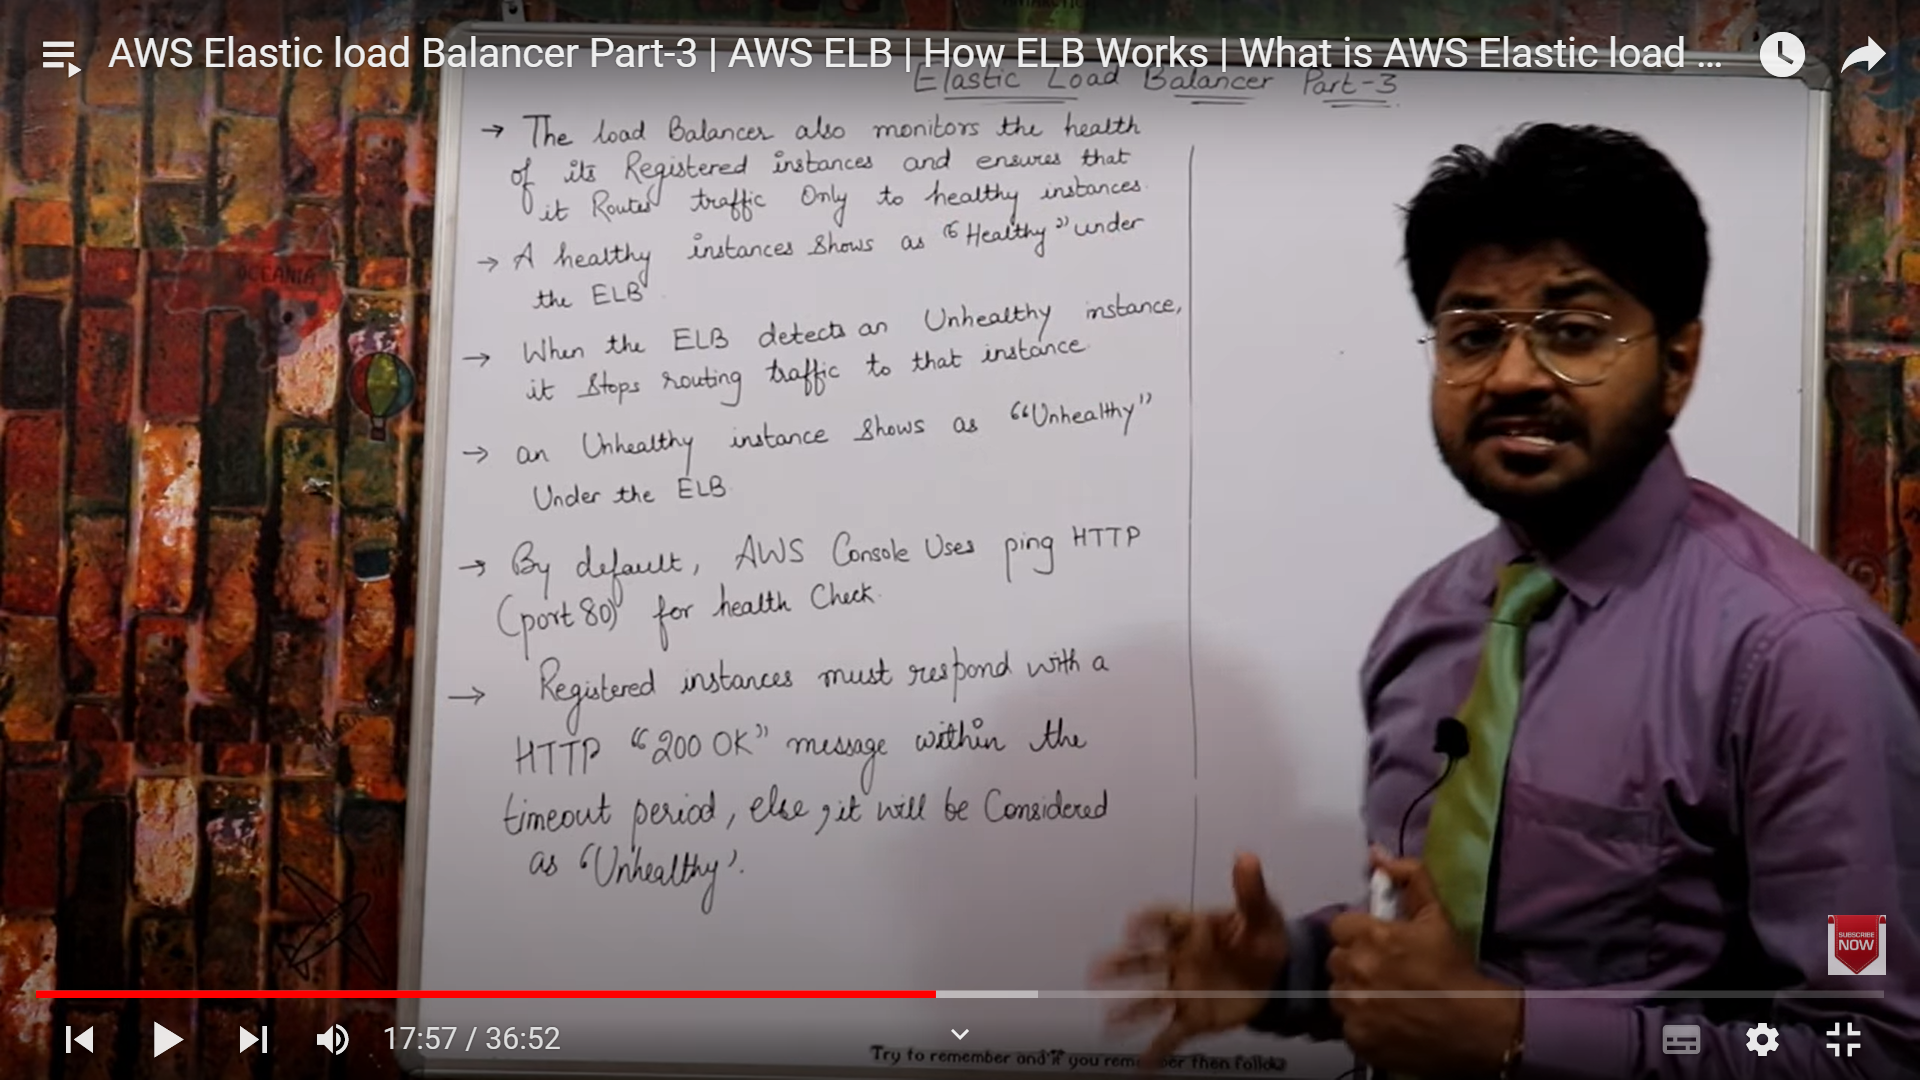 AWS Elastic load Balancer Part-3 | AWS ELB | How ELB Works | What is AWS Elastic load ...
Elastic Load Balancer Part-3
→ The load Balancer also monitors the health
of its Registered instances and ensures that
it Routes traffic Only to healthy instances.
→ A healthy instances Shows as "Healthy" under
the ELB
→ When the ELB detects an Unhealthy instance,
it Stops routing traffic to that instance.
→ an Unhealthy instance Shows as "Unhealthy"
Under the ELB.
→ By default, AWS Console Uses ping HTTP
(port 80) for health Check.
→ Registered instances must respond with a
HTTP "200 OK" message within the
timeout period, else, it will be Considered
as 'Unhealthy'.
OCEANIA
SUBSCRIBE
NOW
17:57 / 36:52
Try to remember and if you remember then follow